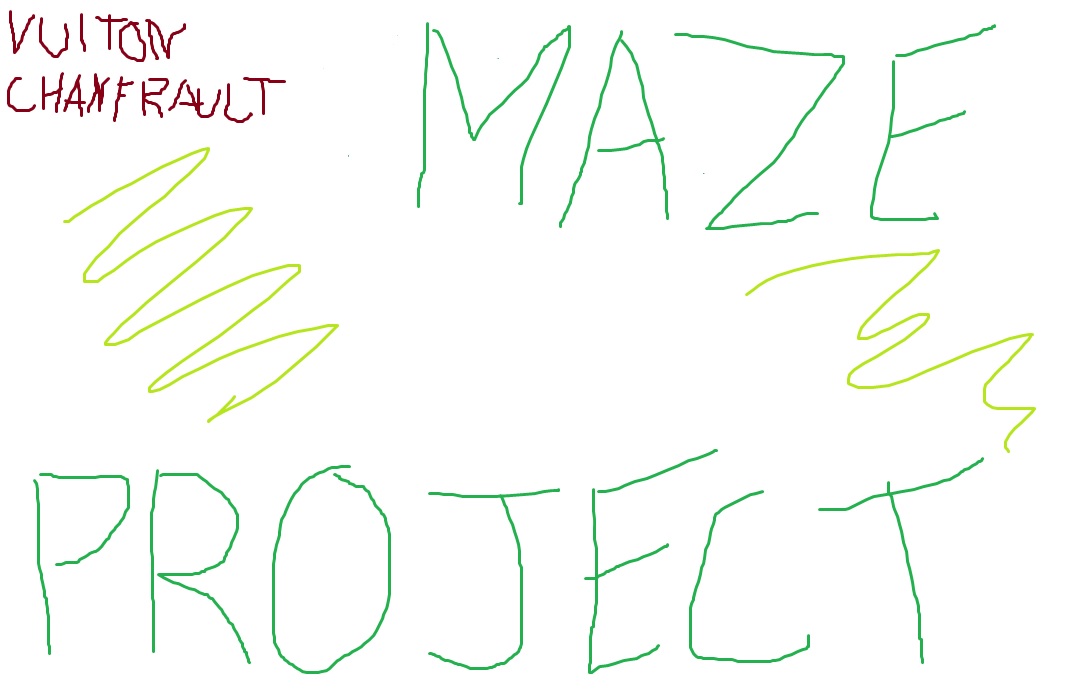 VUITON
CHANFRAULT
MAZE
PROJECT